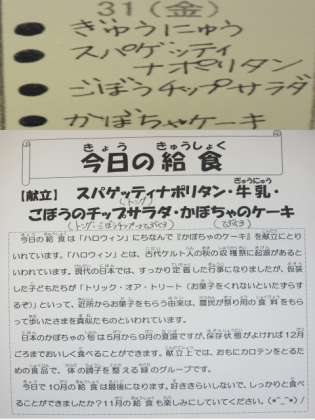 31(金)
ぎゅうにゅう
スパゲッティ
ナポリタン
ごぼうチップサラダ
かぼちゃケーキ
今日の給食
【献立】 スパゲッティナポリタン・牛乳・
ごぼうのチップサラダ・かぼちゃのケーキ
今日の給食は「ハロウィン」にちなんで『かぼちゃのケーキ』を献立にとり
いれています。「ハロウィン」とは、古代ケルト人の秋の収穫祭に起源があると
いわれています。現代の日本では、すっかり定着した行事になりましたが、仮装
した子どもたちが「トリック・オア・トリート（お菓子をくれないといたずらす
るぞ）」といって、近所からお菓子をもらう由来は、農民が祭り用の食料をもら
って歩いたさまを真似たものといわれています。
日本のかぼちゃの旬は5月から9月の夏頃ですが、保存状態がよければ12月
ごろまでおいしく食べることができます。献立上では、おもにカロテンをとるた
めの食品で、体の調子を整える緑のグループです。
今日で10月の給食は最後になります。好ききらいしないで、しっかりと食べ
ることができましたか？11月の給食も楽しみにしていてください。(*^_^*)/